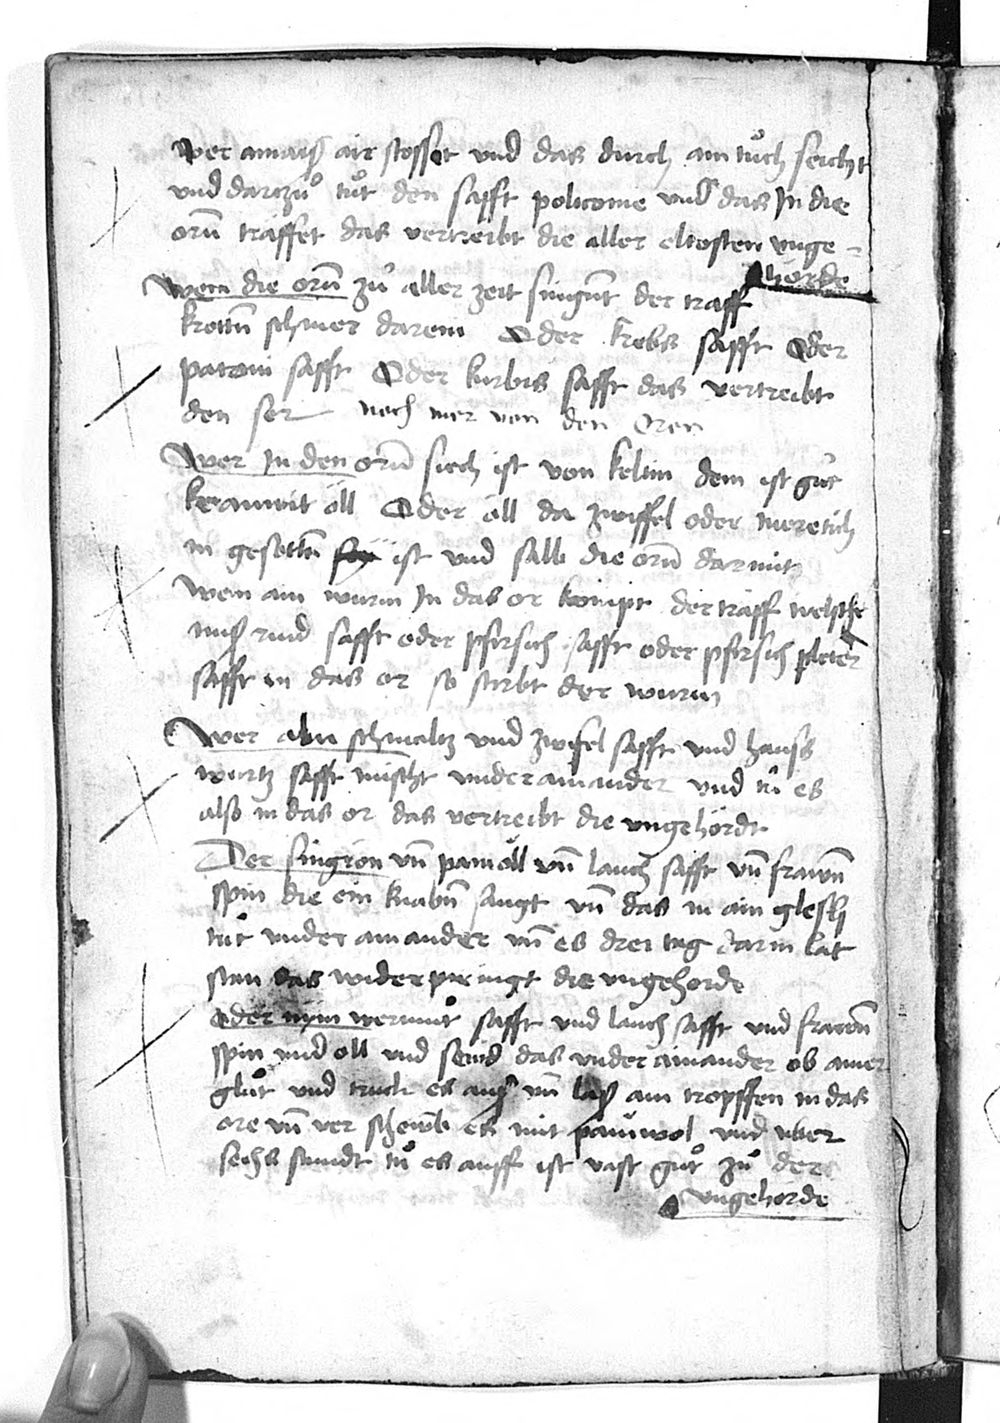 Wer amaiß air stosset und das durch ain tůch seicht
und darzů tůt den safft policome und das In die
orn̄ träffet das vertreibt die aller eltosten unge-
hörde
Wem die orn̄ zů aller zeit singn̄t der traff
krottn̄ schmer darein Oder krebs safft Oder
safft Oder kurbis safft das vertreibt
den ser noch mer von den Oren
Wer In den orn̄ siech ist von keltin dem ist gůt
kramwit öll Oder öll da zwiffel oder merettich
in gesottn̄ ist und salb die orn̄ darmit
Wem ain wurm In das or kompt der träff welsche
nuß rind safft oder pfersich safft oder pfersich pleter
safft in das or so stirbt der wurm
Wer alm schmaltz und zwifel safft und hauß
wurtz safft mischt under ainander und tů es
also in das or das vertreibt die ungehördt
Der singron un̄ pamöll un̄ lauch safft un̄ frawn̄
spin die ein knabn̄ saugt un̄ das in ain gleslj
tůt under ainander un̄ es drei tag darin lat
stan das widerpringt die ungehorde
Oder nym wermůt safft und lauch safft und frawn̄
spin und öll und seud das under ainander ob ainer
glůt und truck es auß un̄ laß ain tropffen in das
ore un̄ ver schoub es mit pamwol und uber
sechs stundt tů es auff ist vast gůt zů der
ungehörde